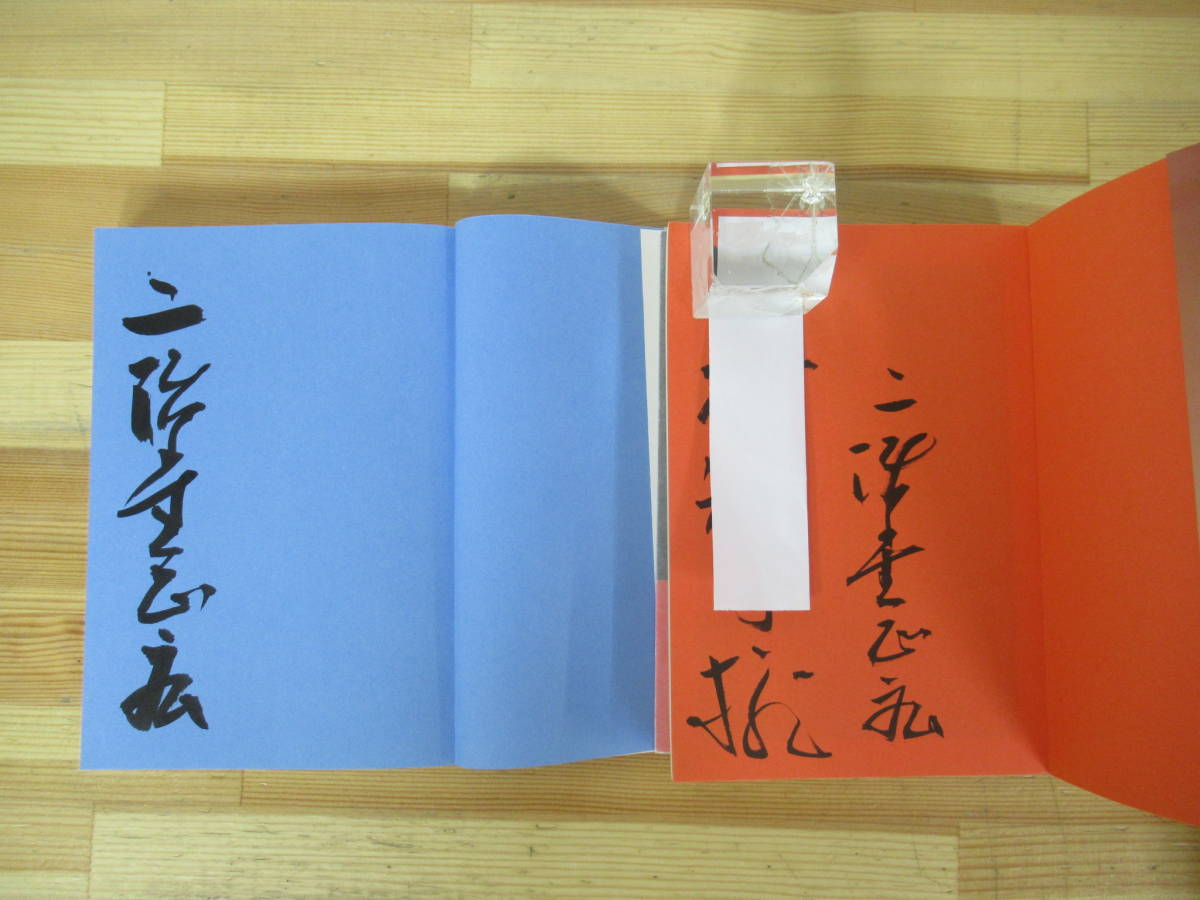 二階堂正宏
二階堂正宏